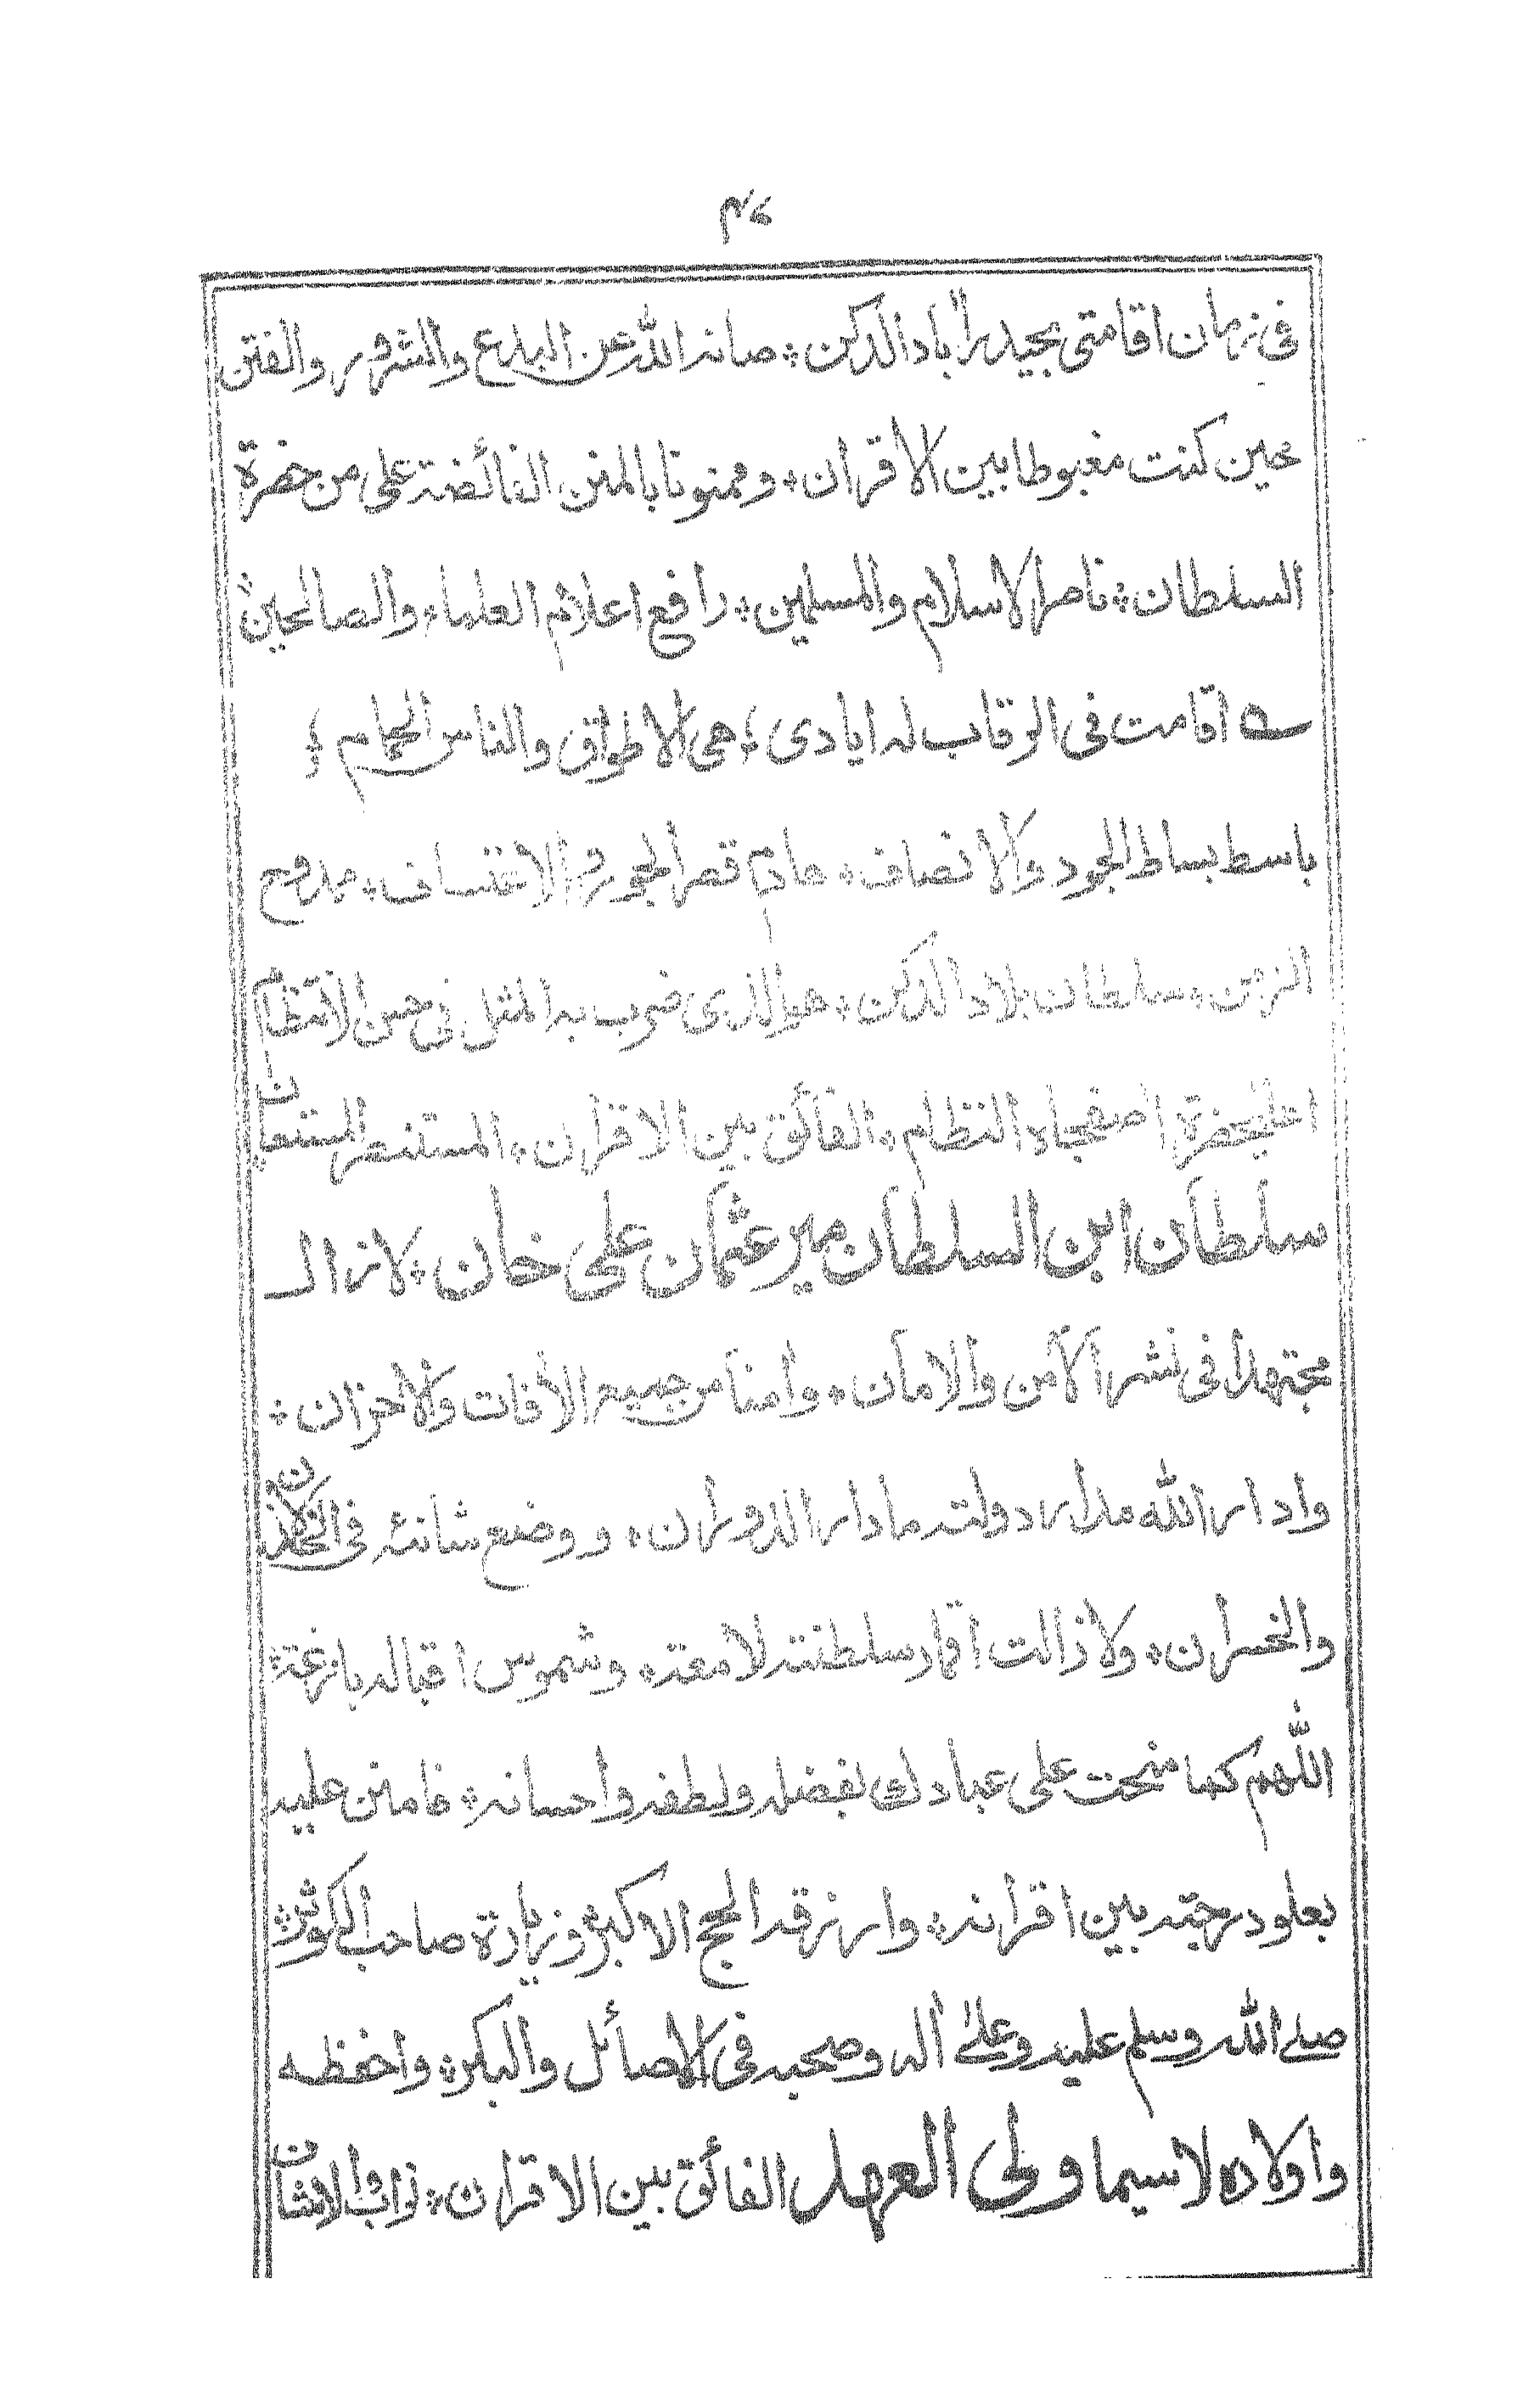 في زمان اقامتى بحيدراباد الدكن ؞ صانه الله عن البدع والشرور والفتن
حين كنت مغبوطا بين الاقران ؞ وممنونا بالمنن الفائضة على من حضرة
السلطان ؞ ناصر الاسلام والمسلمين ؞ رافع اعلام العلماء والصالحين ؞
اقامت فى الرقاب له ايادى ؞ هى الاطواق والناس الحمام ؞
باسط بساط الجود والانصاف ؞ هادم قصر الجور والاعتساف ؞ ممدوح
الزمن ؞ سلطان بلاد الدكن ؞ هو الذى ضرب به المثل فى حسن الانتظام
اعليحضرة اصفجاه النظام ؞ الفائق بين الاقران ؞ المستنصر المستعان
سلطان ابن السلطان مير عثمان على خان ؞ لازال
مجتهدا فى نشر الامن والامان ؞ وامنا من جميع الأفات والاحزان ؞
وادار الله مدار دولته مادار الدوران ؞ ووضع شانئه فى الخذلان
والخسران ؞ ولا زالت اقمار سلطنته لامعة ؞ وشموس اقباله بازغة ؞
اللهم كما منحت على عبادك بفضله ولطفه واحسانه ؞ فامنن عليه
بعلو درجته بين اقرانه ؞ وارزقه الحج الاكبر وزيارة صاحب الكوثر ؞
صلے الله وسلم عليه وعلےٰ اله وصحبه فى الاصائل والبكر ؞ واحفظه
واولاده لاسيما ولى العهد الفائق بين الاقران ؞ نواب والاشان